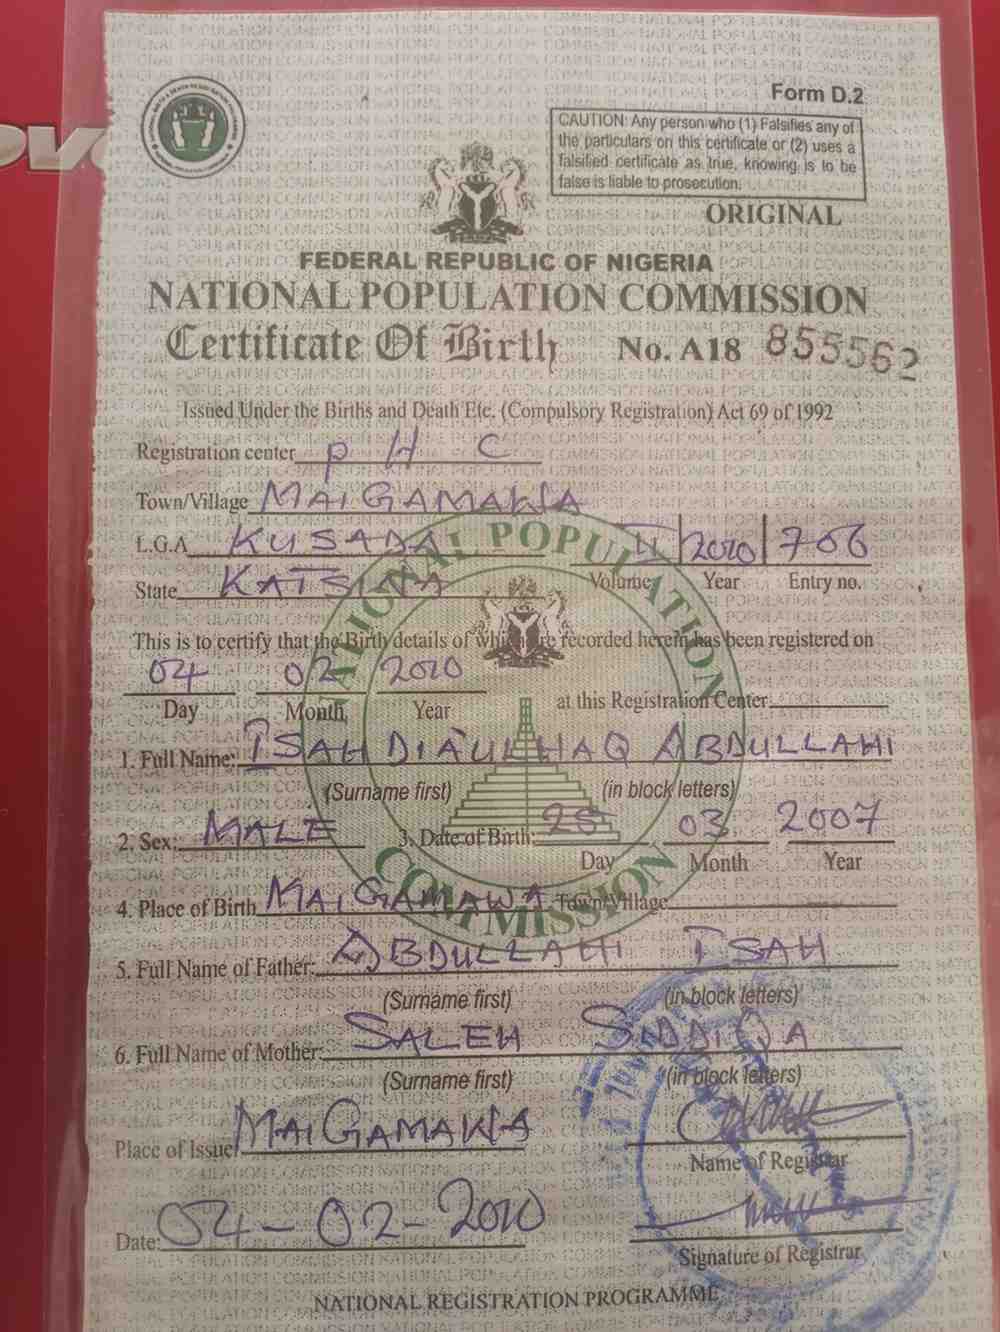 Form D.2
CAUTION: Any person who (1) Falsifies any of
the particulars on this certificate or (2) uses a
falsified certificate as true, knowing is to be
false is liable to prosecution.
ORIGINAL
FEDERAL REPUBLIC OF NIGERIA
NATIONAL POPULATION COMMISSION
Certificate Of Birth No. A18 855562
Issued Under the Births and Death Etc. (Compulsory Registration) Act 69 of 1992
Registration center PHC
Town/Village MAIGAMAWA
L.G.A KUSADA
II 2010 706
State KATSINA
Volume Year Entry no.
This is to certify that the Birth details of which are recorded herein has been registered on
04 02 2010
Day Month Year at this Registration Center
1. Full Name: ISAH DIA'ULHAQ ABDULLAHI
(Surname first) (in block letters)
2. Sex: MALE 3. Date of Birth: 25 03 2007
Day Month Year
4. Place of Birth MAIGAMAWA Town/Village
5. Full Name of Father: ABDULLAHI ISAH
(Surname first) (in block letters)
6. Full Name of Mother: SALEH SIDDIQA
(Surname first) (in block letters)
Place of Issue MAIGAMAWA
Name of Registrar
Date: 04-02-2010
Signature of Registrar
NATIONAL REGISTRATION PROGRAMME
NATIONAL POPULATION
COMMISSION